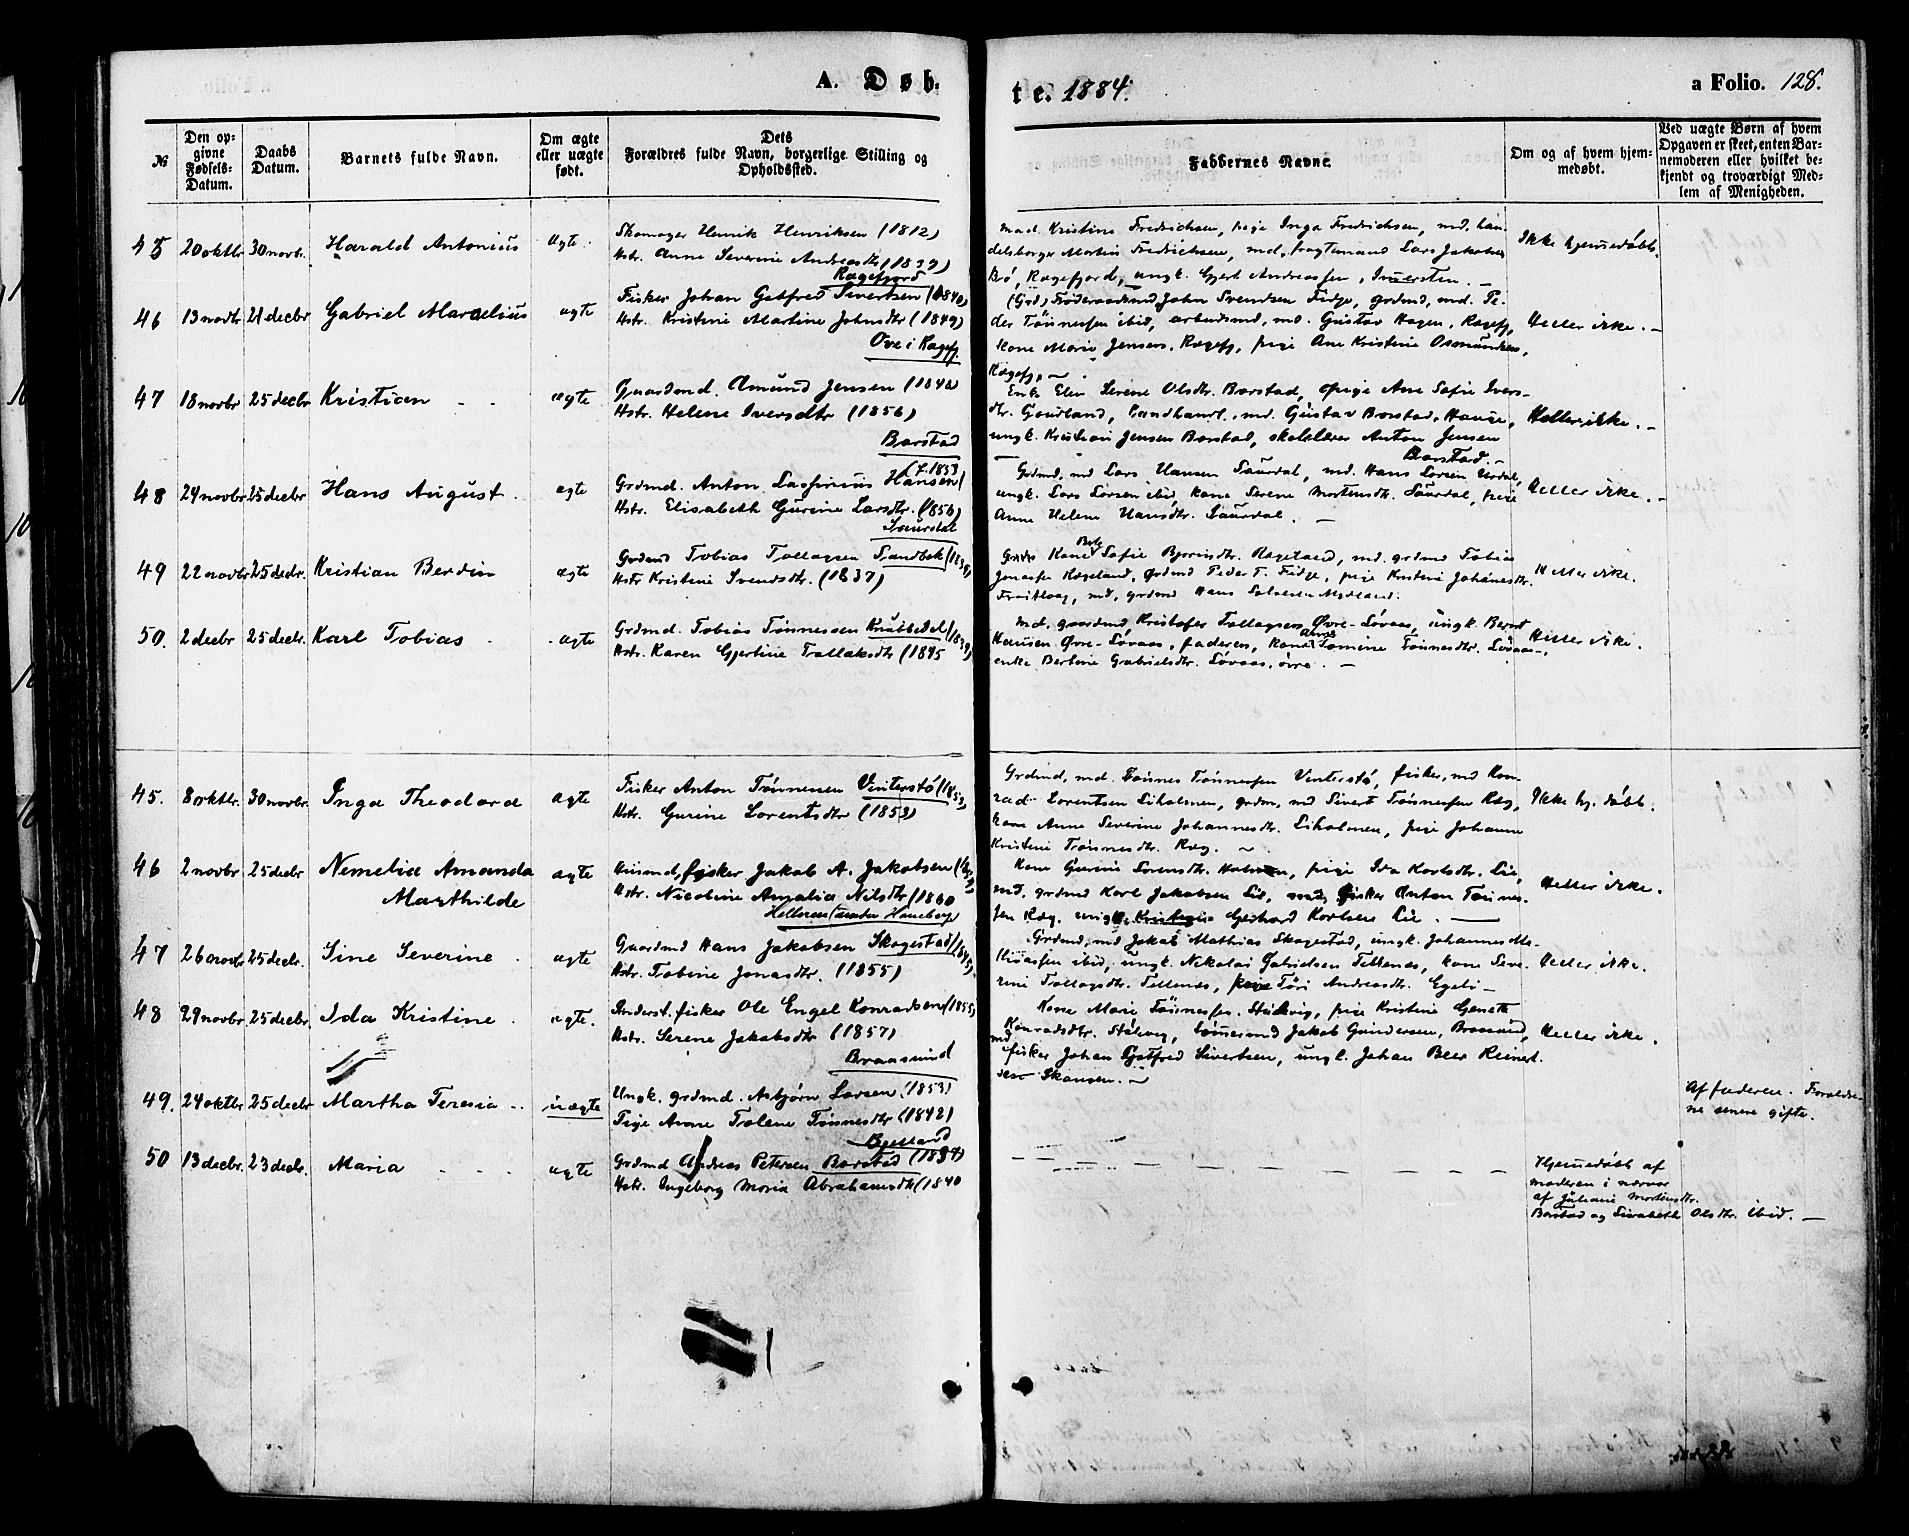 A. Døb.
te. 1884.
a Folio. 128.
№
Den opgivne Fødsels-Datum.
Daabs Datum.
Barnets fulde Navn.
Om ægte eller uægte født.
Dets Forældres fulde Navn, borgerlige Stilling og Opholdssted.
Faddernes Navne.
Om og af hvem hjemmedøbt.
Ved uægte Børn af hvem Opgaven er skeet, enten Barnemoderen eller hvilket bekjendt og troværdigt Medlem af Menigheden.
45 20 oktbr. 30 novbr. Harald Antonius ægte
Skomager Henrik Henriksen (1812)
Hstr. Anne Severine Andreasdtr (1839)
Rægefjord
mad. Kristine Fredrichsen, pige Inga Fredrichsen, md. han-
delsborger Martin Fredrichsen, md. fragtemand Lars Jakobsen
Bö, Rægefjord, ungk. Gjert Andreassen,
Ikke hjemedøbt.
46 13 novbr 21 decbr Gabriel Marcelius ægte
Fisker Johan Gotfred Sivertsen (1840)
Hstr. Kristine Martine Johnsdtr (1849)
Ove i Rægefj.
(Grd) Föderaadsmd John Svendsen Fidje, grdmd, md. Pe-
der Tönnessen ibid, arbeidsmd, md. Gustav Hagen, Rægefj,
kone Marie Jensen, Rægefj, pige Ane Kristine Osmundsen,
Rægefj. —
Heller ikke. —
47 18 novbr 25 decbr Kristian - - ægte
Gaardmd. Amund Jensen (1848)
Hstr. Helene Iversdtr (1856)
Barstad
Enk. Elen Serene Olsdtr. Barstad, pige Ane Sofie Ivers-
dtr. Gaudland, Landhandl. md. Gustav Barstad, Hauge,
ungk. Kristian Jensen Barstad, skolelærer Anton Jensen
Barstad. —
Heller ikke. —
48 24 novbr 25 decbr Hans August ægte
(f. 1853
Grdmd. Anton Hansen
Hstr. Elisabeth Gurine Larsdtr. (1856)
Saurdal
Grdmd, md Lars Hansen Saurdal, md. Hans Larsen Urdal,
ungk. Lars Larsen ibid, kone Serene Mortensdtr. Saurdal, pige
Anne Helene Hansdtr. Saurdal. —
Heller ikke. —
49 22 novbr 25 decbr. Kristian Berdin ægte
Grdmd Tobias Tollagsen Sandbek (1838)
Hstr Kristine Svendsdtr. (1837)
Kone Sofie Bjørnsdtr. Rægeland, md. grdmd Tobias
Jonassen Rægeland, Grdmd Peder T. Fidje, pige Kristine Johanesdtr.
md, grdmd Hans Mydland.
Heller ikke.
50. 2 decbr 25 decbr. Karl Tobias ægte
Grdmd. Tobias Tönnessen (1839)
Hstr. Karen Gjertine Tollaksdtr (1845
md. gaardmd Kristofer Tollagsen Øvre-Løvaas, ungk. Bernt
Hansen Øvre-Løvaas, faderen, kone Anne Tomine Tönnesdtr. Løvaas
enke Bertine Gabrielsdtr. Løvaas, øvre. —
Heller ikke.
45. 8 oktbr. 30 novbr. Inga Theodora ægte
Fisker Anton Tönnesen Vinterstö (1853)
Hstr. Gurine Lorentsdtr (1853)
Grdmd, md. Tönnes Tönnessen Vinterstö, fisker, md Kon-
rad Lorentsen Liholmen, grdm, md Sivert Tönnessen Ræg,
kone Anne Severine Johannesdtr. Liholmen, pige Johanne
Kristine Tönnesdtr. Ræg. —
Ikke hj. døbt.
46 2 novbr 25 decbr Nemelia Amanda ægte
Marthilde
Huusmd, fisker Jakob A. Jakobsen
Hstr. Nicoline Amalia Nilsdtr (1860
Helleren
Kone Gurine Lorensdtr. pige Ida Karlsdtr. Lie,
md. grdmd Karl Jakobsen Lie, md, fisker Anton Tönnes-
sen Ræg, ungk. Gerhard Karlsen Lie. —
Heller ikke.
47 26 novbr 25 decbr. Sine Severine ægte
Gaardmd Hans Jakobsen Skogestad
Hstr. Tobine Jonasdtr. (1855)
Grdmd, md Jakob Mathias Skogestad, ungk. Johannes Ma-
ibid, ungk. Nikolai Gabrielsen Tellenes, kone Seve-
rine Tollagsdtr. Tellenes, pige Tóri Andreasdtr. Egeli —
Heller ikke.
48 29 novbr 25 decbr. Ida Kristine ægte.
fisker Ole Engel Konradsen (1855)
Hstr. Serene Jakobsdtr (1857)
Braasund
Kone Marie Tönnessen, pige Kristine
Konradsdtr. Jakob Gundersen, Braasund,
md fisker Johan Gotfred Sivertsen, ungk. Johan Beer Reinert-
sen Skansen. —
Heller ikke.
49. 24 oktbr 25 decbr Martha Teresia uægte
Ungk. grdmd. Asbjørn Larsen (1853)
Pige Anne Tolene Tönnesdtr (1842)
Bjelland
Af faderen. Foreldre-
ne senere gifte.
50 13 decbr. 23 decbr. Maria - - - ægte
Grdmd Andreas Petersen Barstad (1834)
Hstr. Ingeborg Maria Abrahamsdtr (1840
Hjemmedøbt af
moderen i nærvær
af Juliane Mortensdtr.
Barstad og Lisabeth Olsdtr. ibid. —